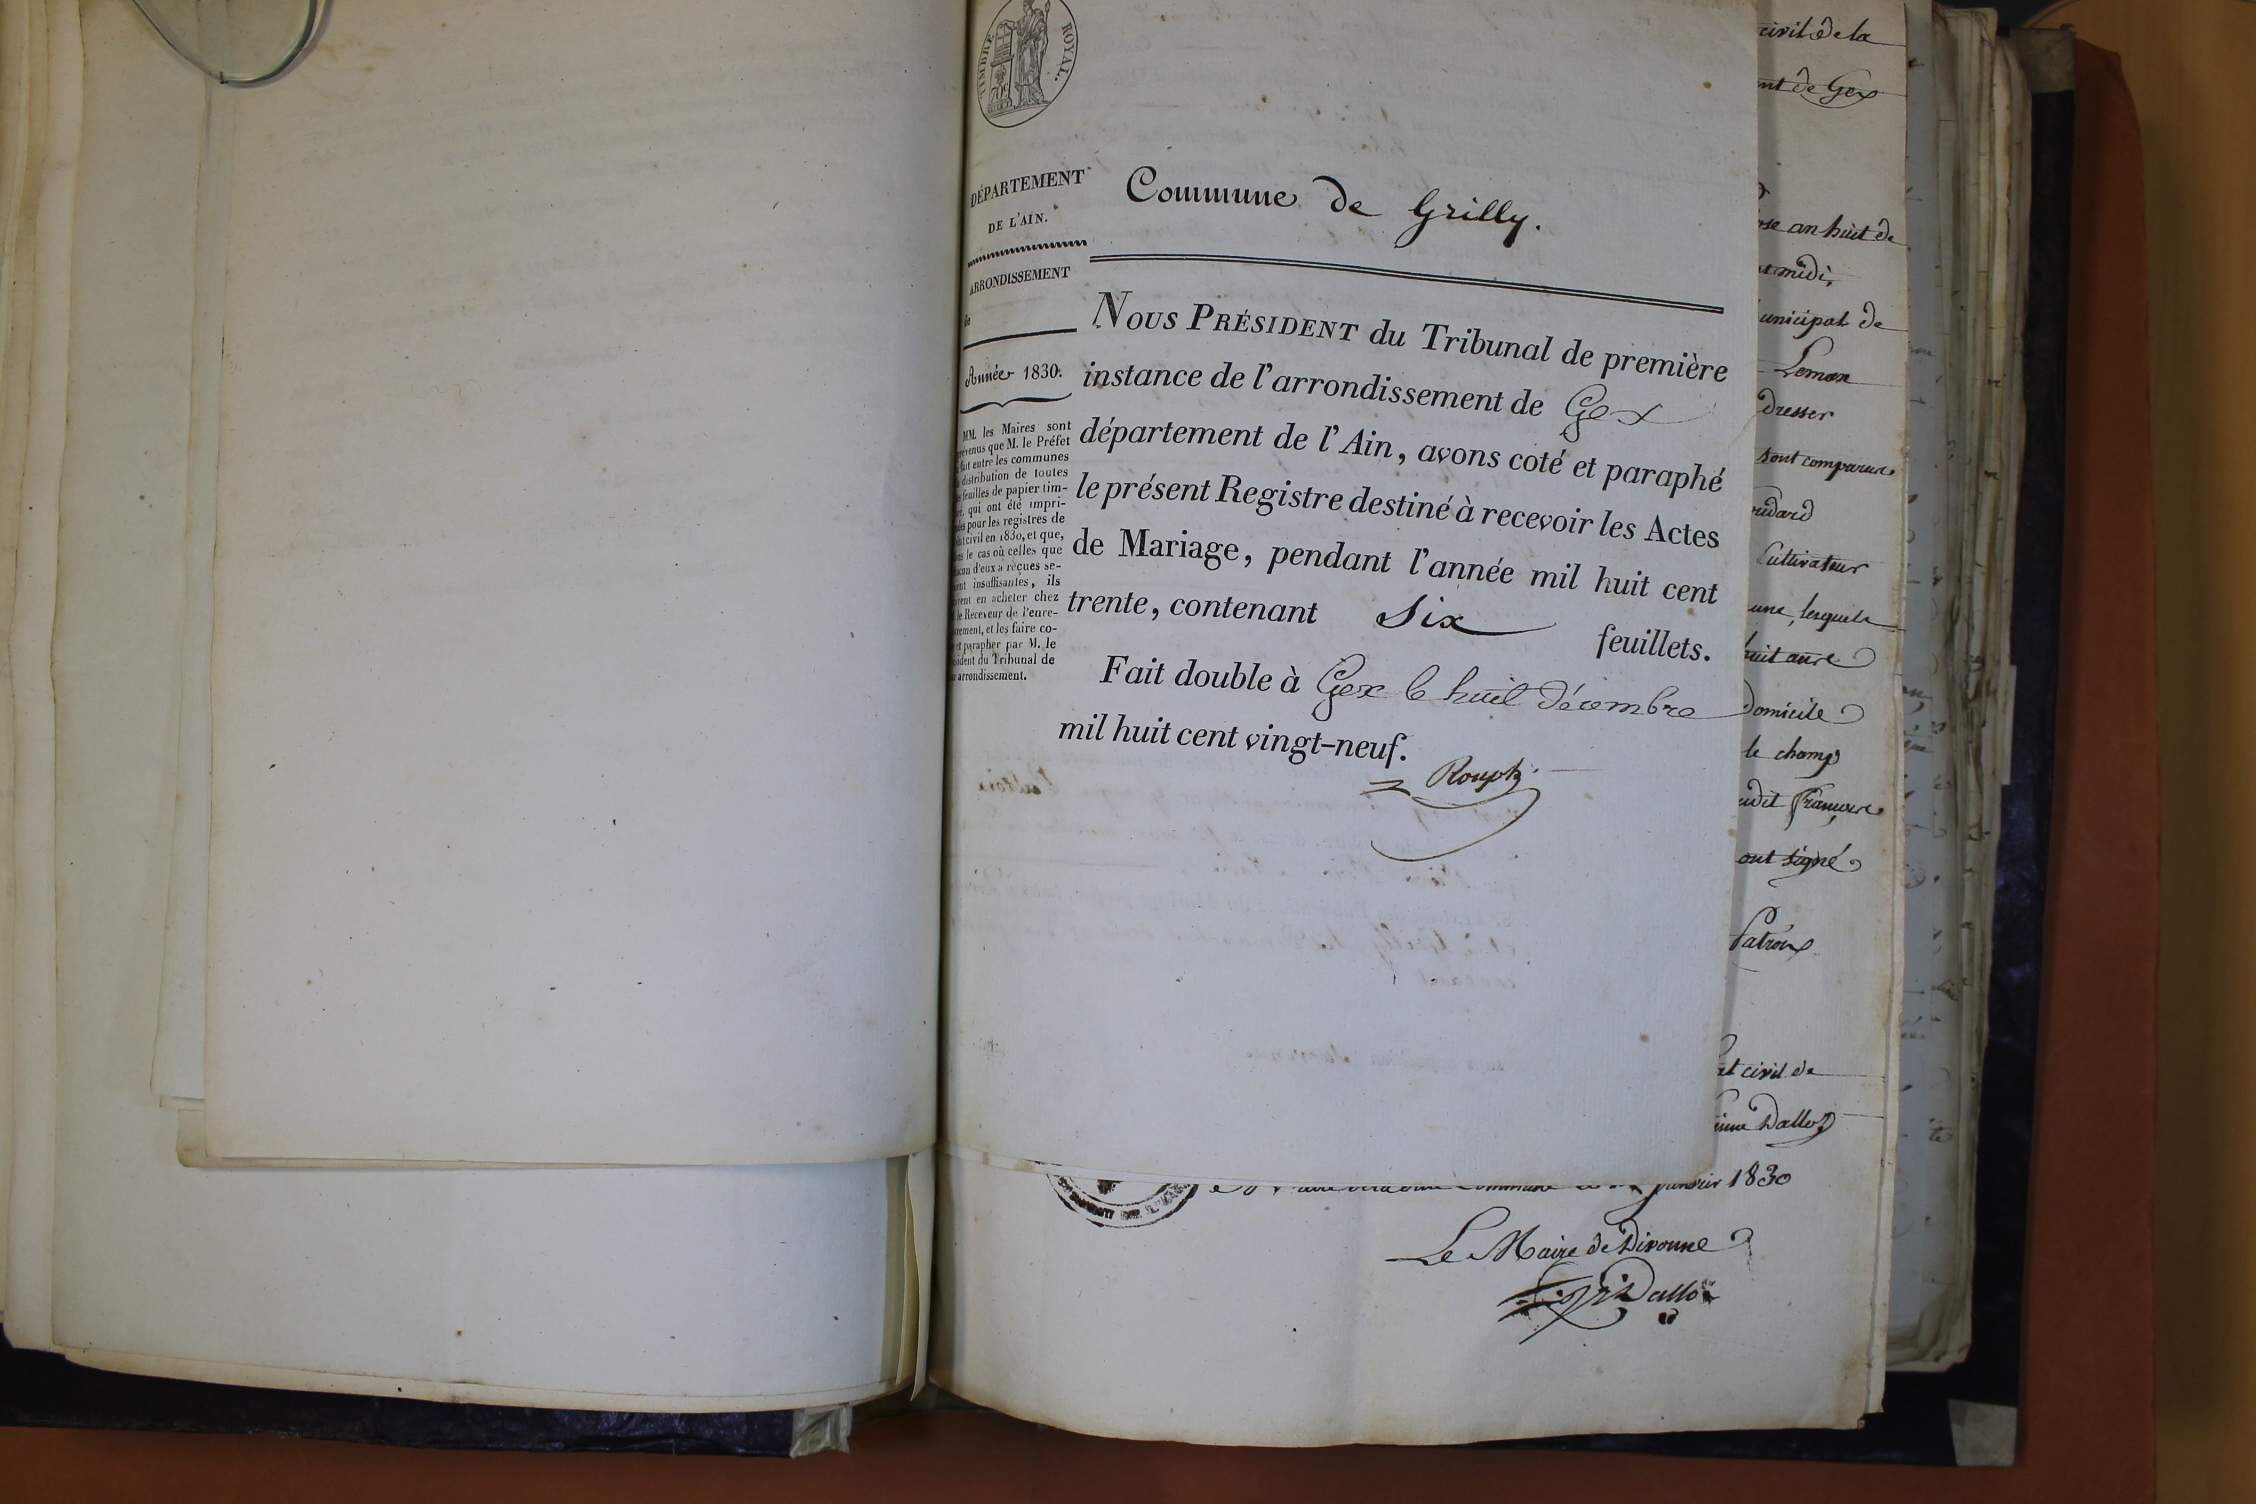 TIMBRE ROYAL.
70c
DÉPARTEMENT
DE L'AIN.
ARRONDISSEMENT
de
Année 1830.
MM. les Maires sont
prévenus que M. le Préfet
fait entre les communes
distribution de toutes
feuilles de papier tim-
qui ont été impri-
pour les registres de
civil en 1830, et que,
le cas où celles que
d'eux a reçues se-
insuffisantes, ils
en acheter chez
le Receveur de l'enre-
et les faire co-
et parapher par M. le
du Tribunal de
arrondissement.
Commune de Grilly.
NOUS PRÉSIDENT du Tribunal de première
instance de l'arrondissement de Gex
département de l'Ain, avons coté et paraphé
le présent Registre destiné à recevoir les Actes
de Mariage, pendant l'année mil huit cent
trente, contenant Six feuillets.
Fait double à Gex le huit décembre
mil huit cent vingt-neuf.
civil de la
de Gex
an huit de
midi,
de
Leman
dresser
sont comparus
Cultivateur
lesquels
Domicile
le champ
ont signé
civil de
Dalloz
1830
Le Maire de Divonne